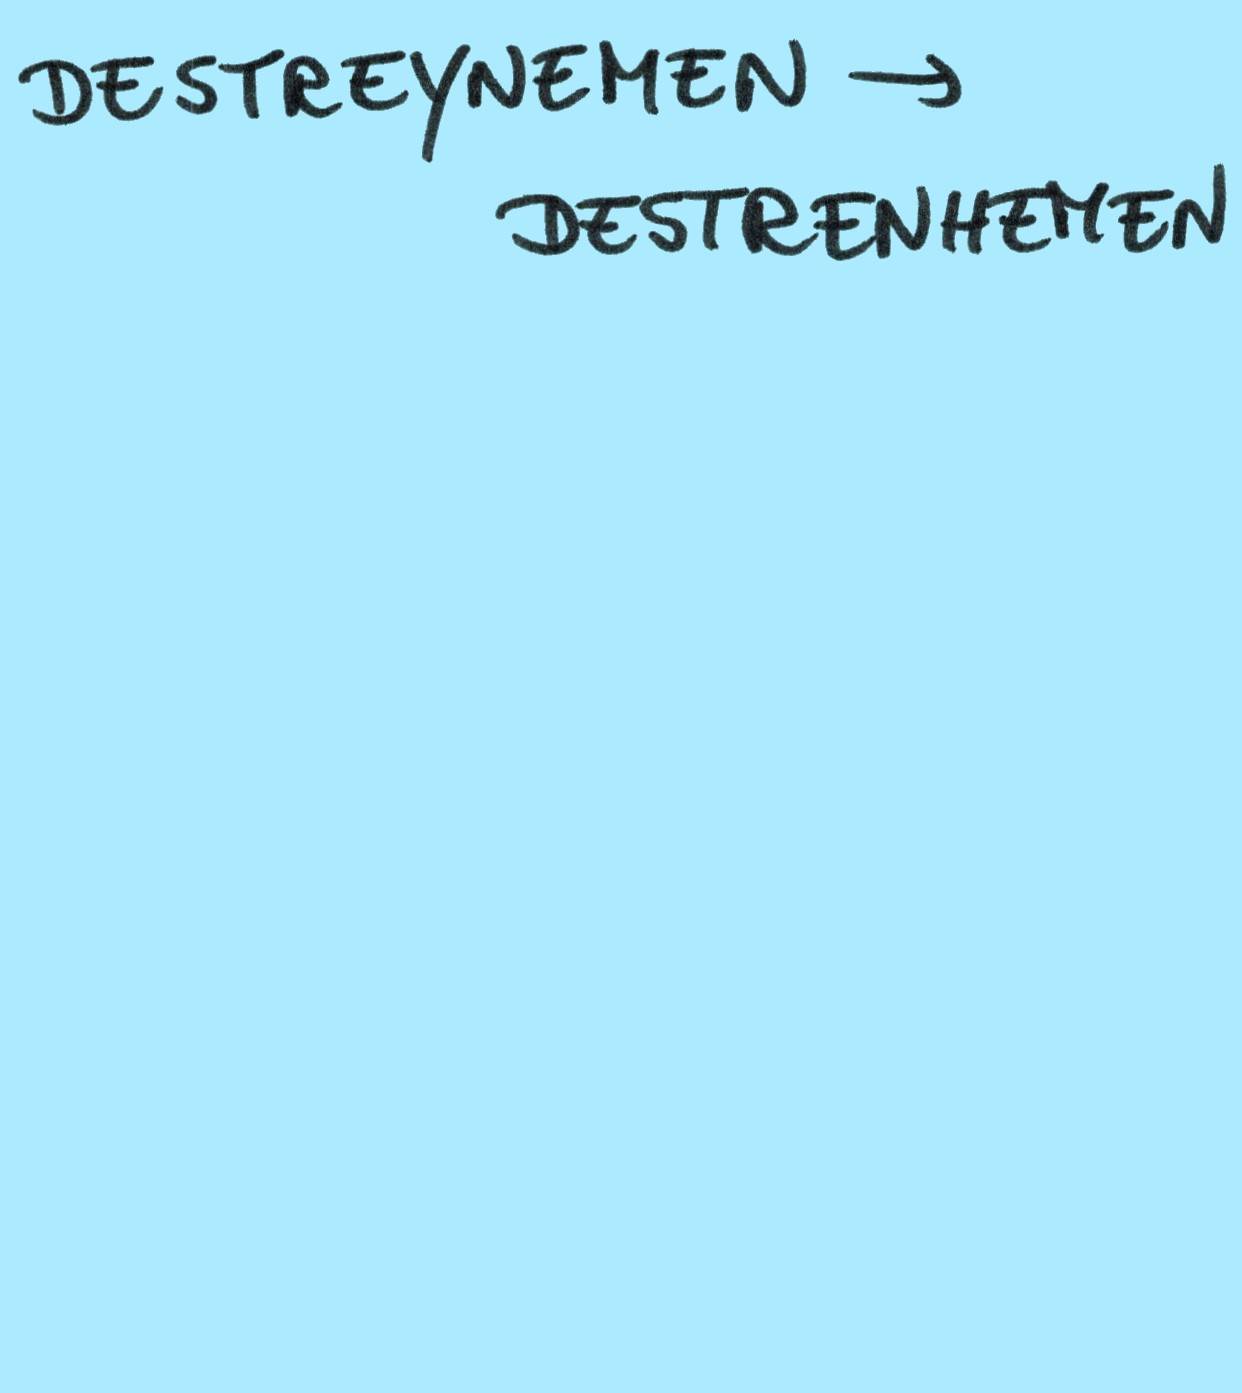 DESTREYNEMEN →
DESTRENHEMEN